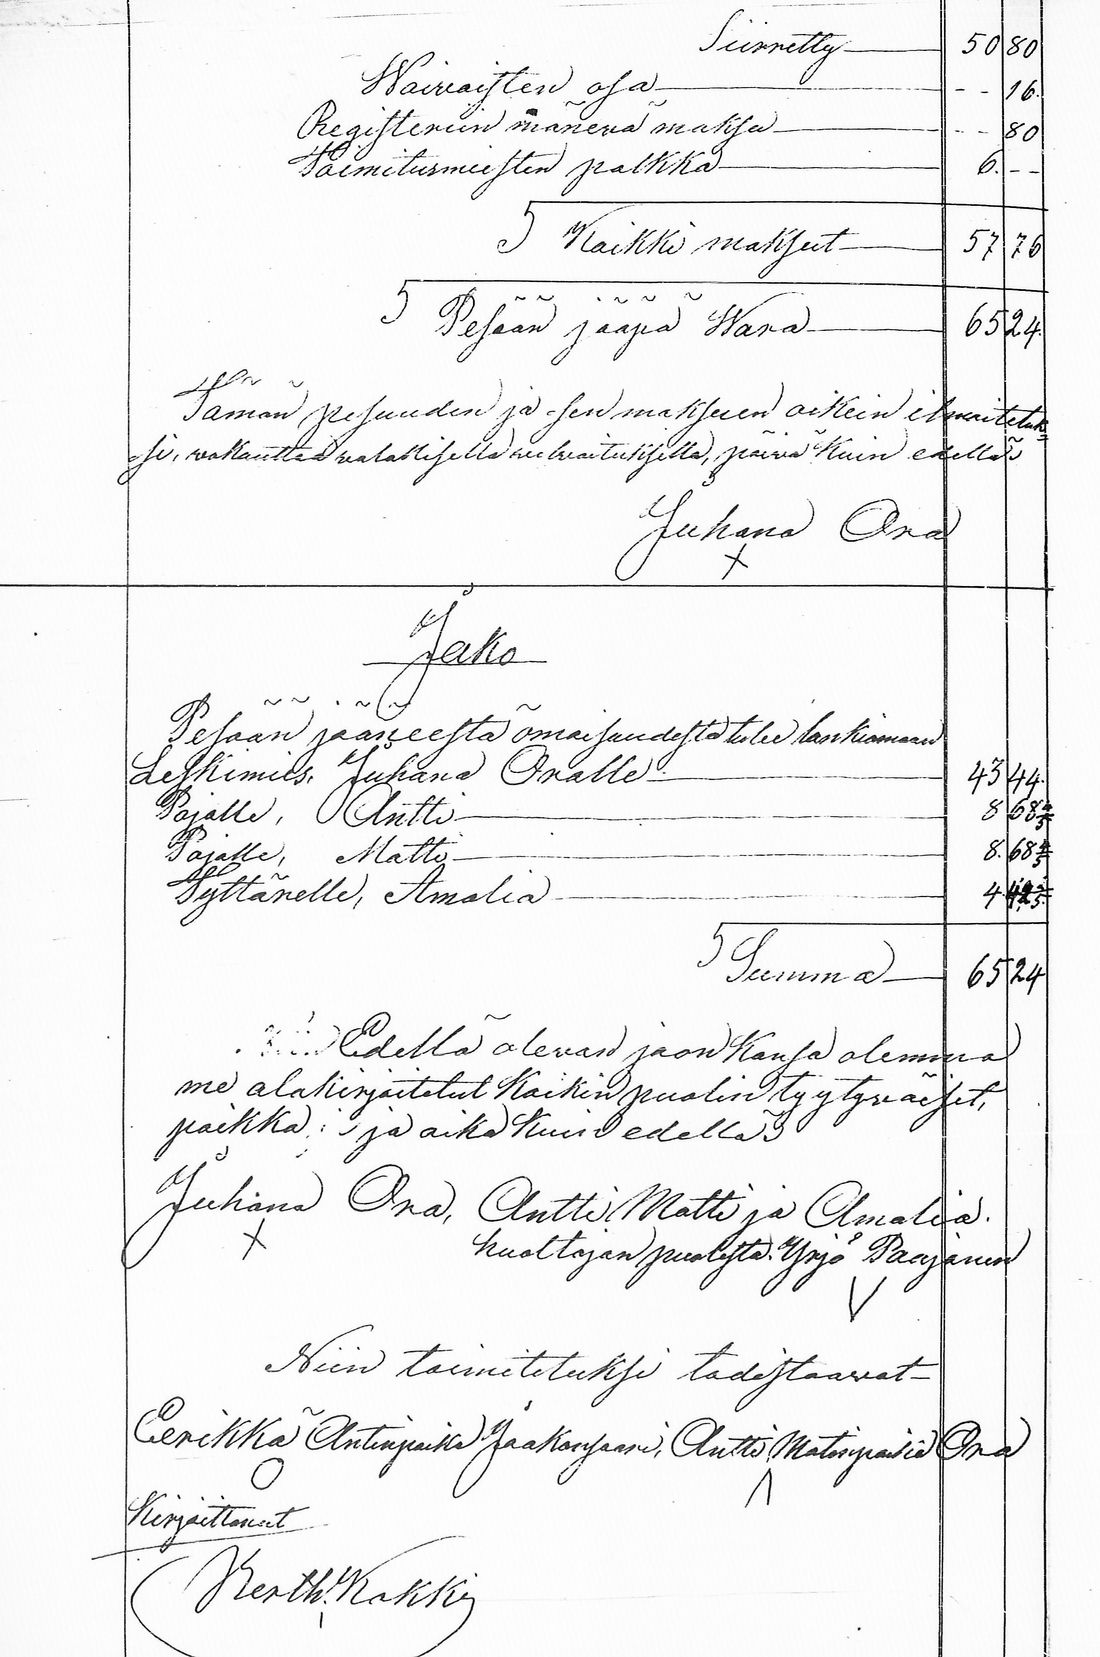 Siirretty 50 80
Waivaisten osa - - 16.
Registeriin mänevä maksu - - 80
Toimitusmiesten palkka 6. - -
Kaikki maksut 57 76
Pesään jääpä Wara 65 24.
Tämän pesuuden ja sen maksuen oikein ilmoitetuk-
si, vakauttaa valallisella velvoituksella, päivä kuin edellä
Juhana Ora
X
Jako
Pesään jääneestä omaisuudesta tulee lankiamaan
Leskimies. Juhana Oralle 43 44.
Pojalle, Antti 8 68
Pojalle, Matti 8. 68
Tyttärelle, Amalia 4
Summa 65 24
Edellä olevan jaon kansa olemma
me alakirjoitetut kaikin puolin tyytyväiset,
paikka ja aika kuin edellä
Juhana Ora, Antti Matti ja Amalia.
X
huoltojan puolesta. Yrjö Paajanen
Niin toimitetuksi todistaavat
Eerikka Antinpoika Jaakonsaari, Antti Matinpoika Ora
Kirjoittanut
Kerth. Kokki